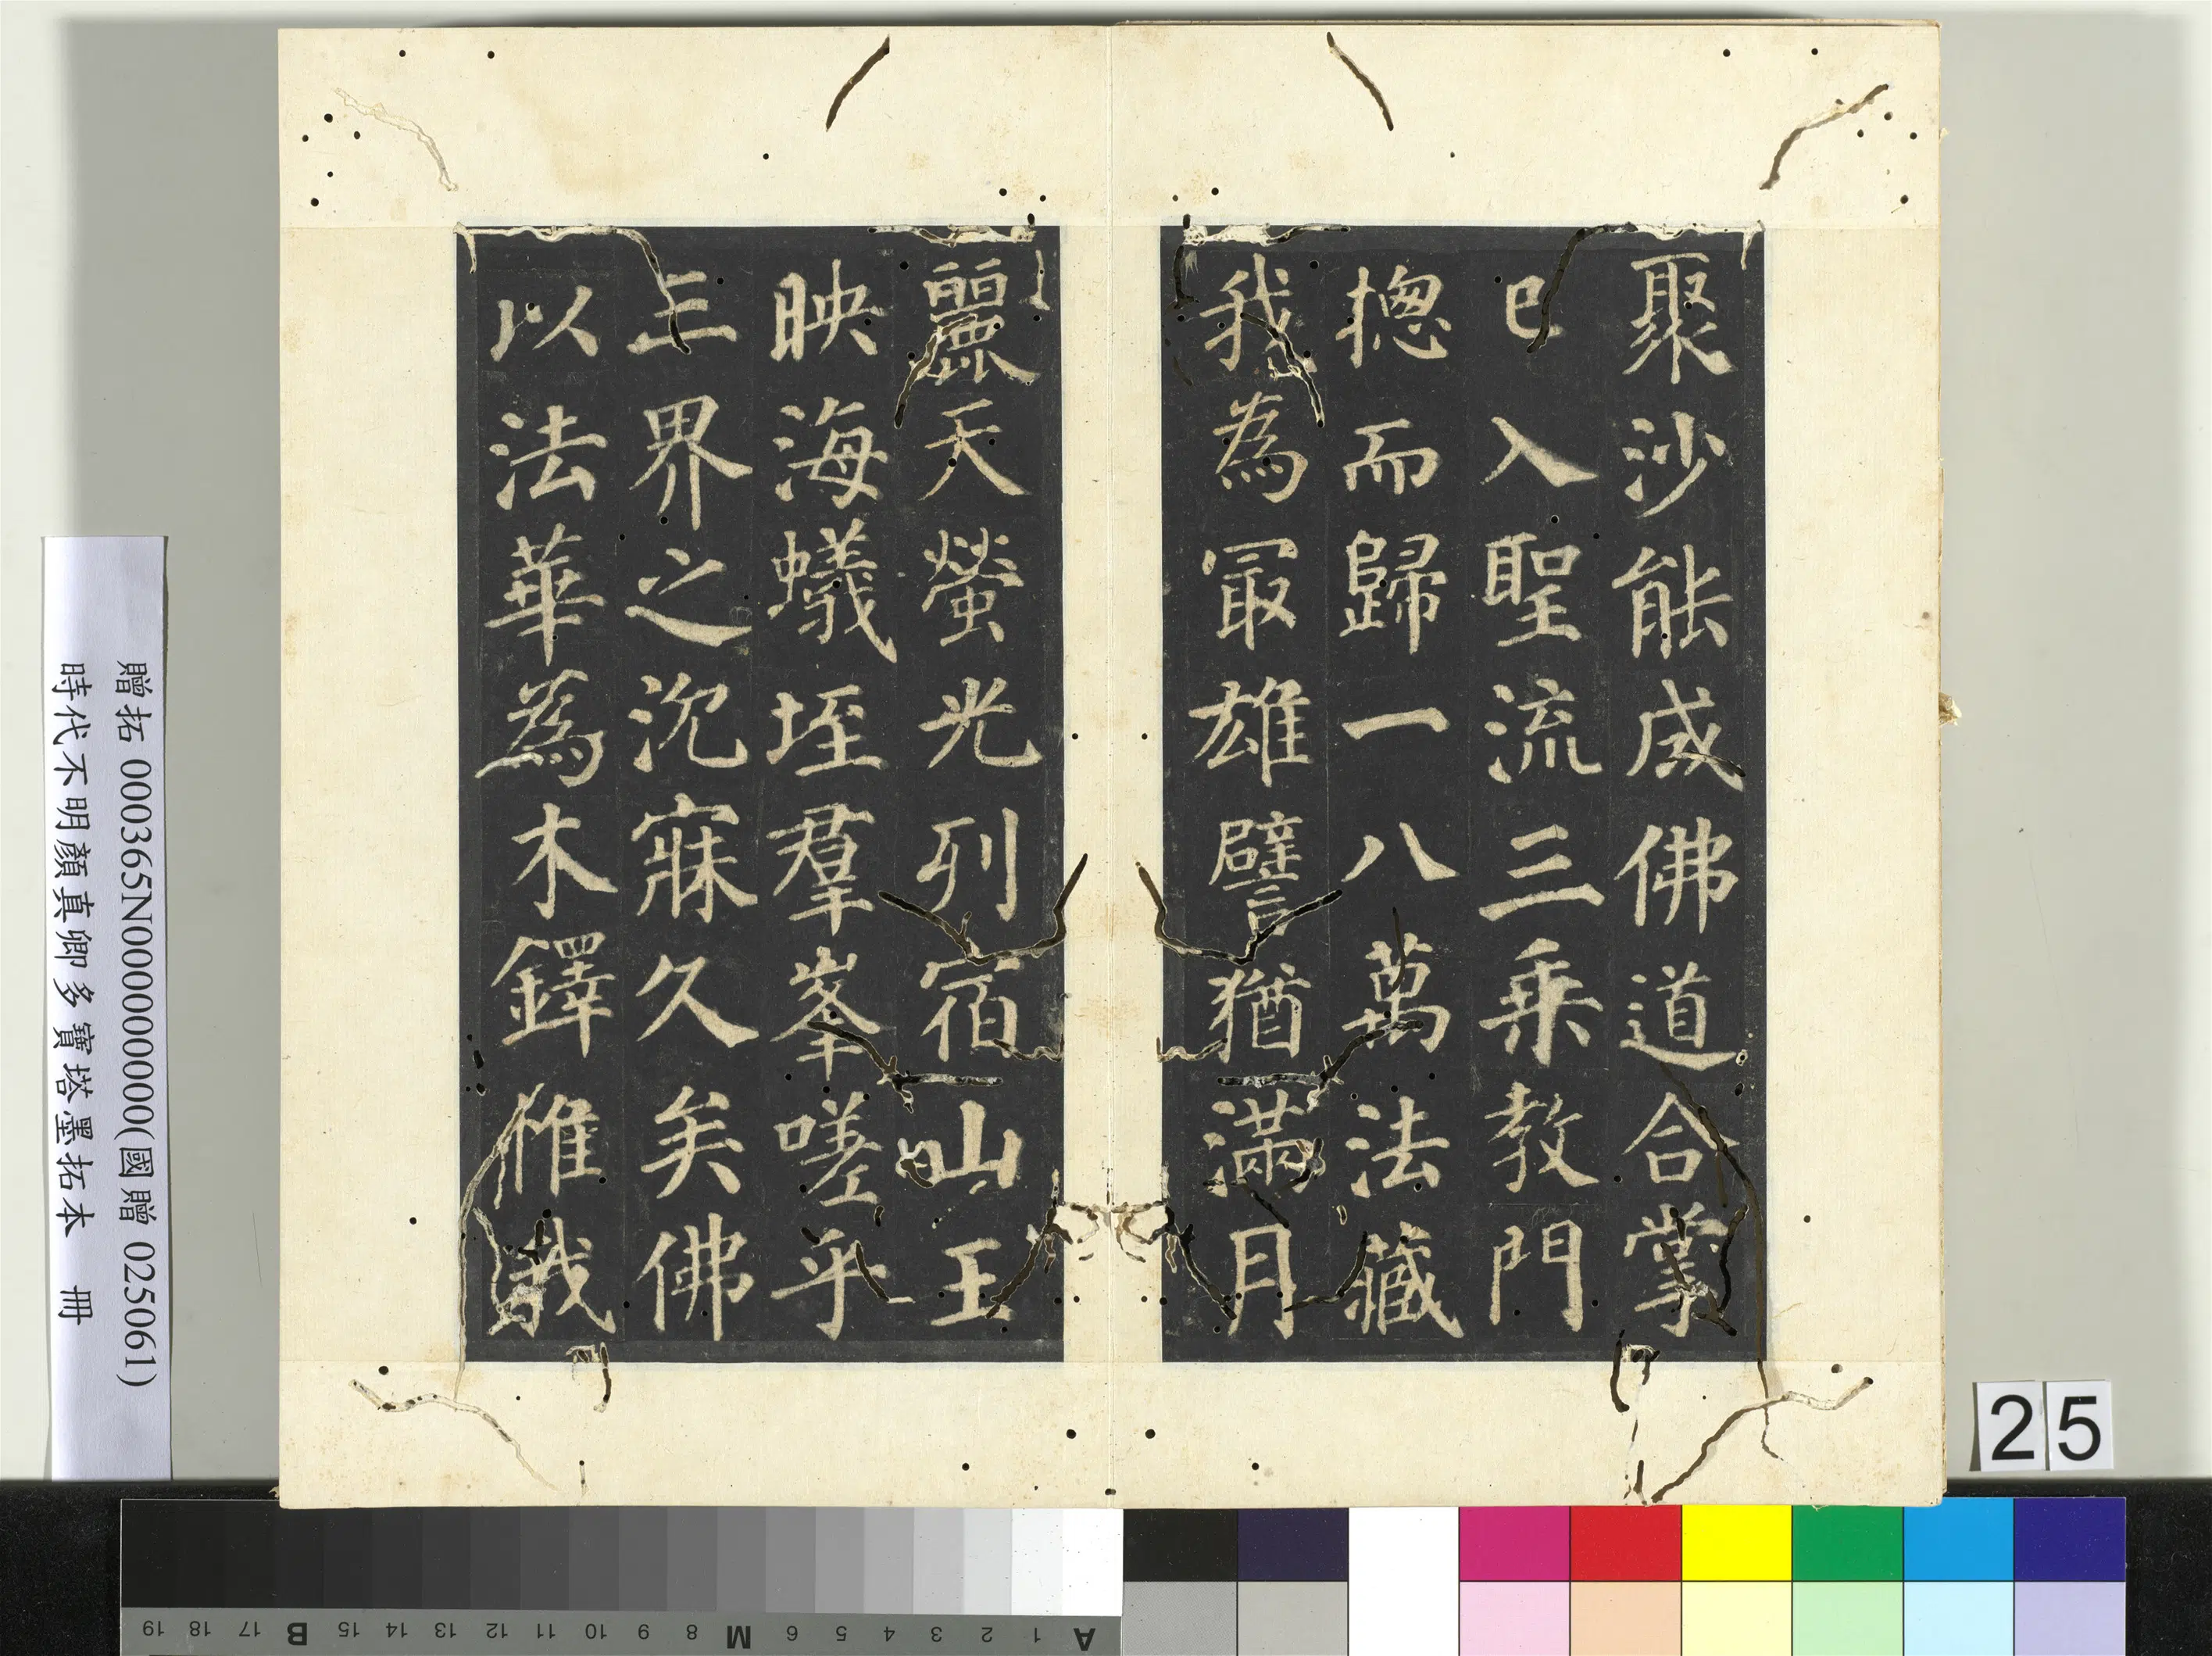 聚沙能成佛道合掌
已入聖流三乘教門
揔而歸一八萬法藏
我為冣雄譬猶滿月
麗天螢光列宿山王
映海蟻垤羣峯嗟乎
三界之沉寐久矣佛
以法華為木鐸惟我
贈拓 000365N000000000(國贈 025061)
時代不明顏真卿多寶塔墨拓本 冊
25
A 1 2 3 4 5 6 M 8 9 10 11 12 13 14 15 B 17 18 19